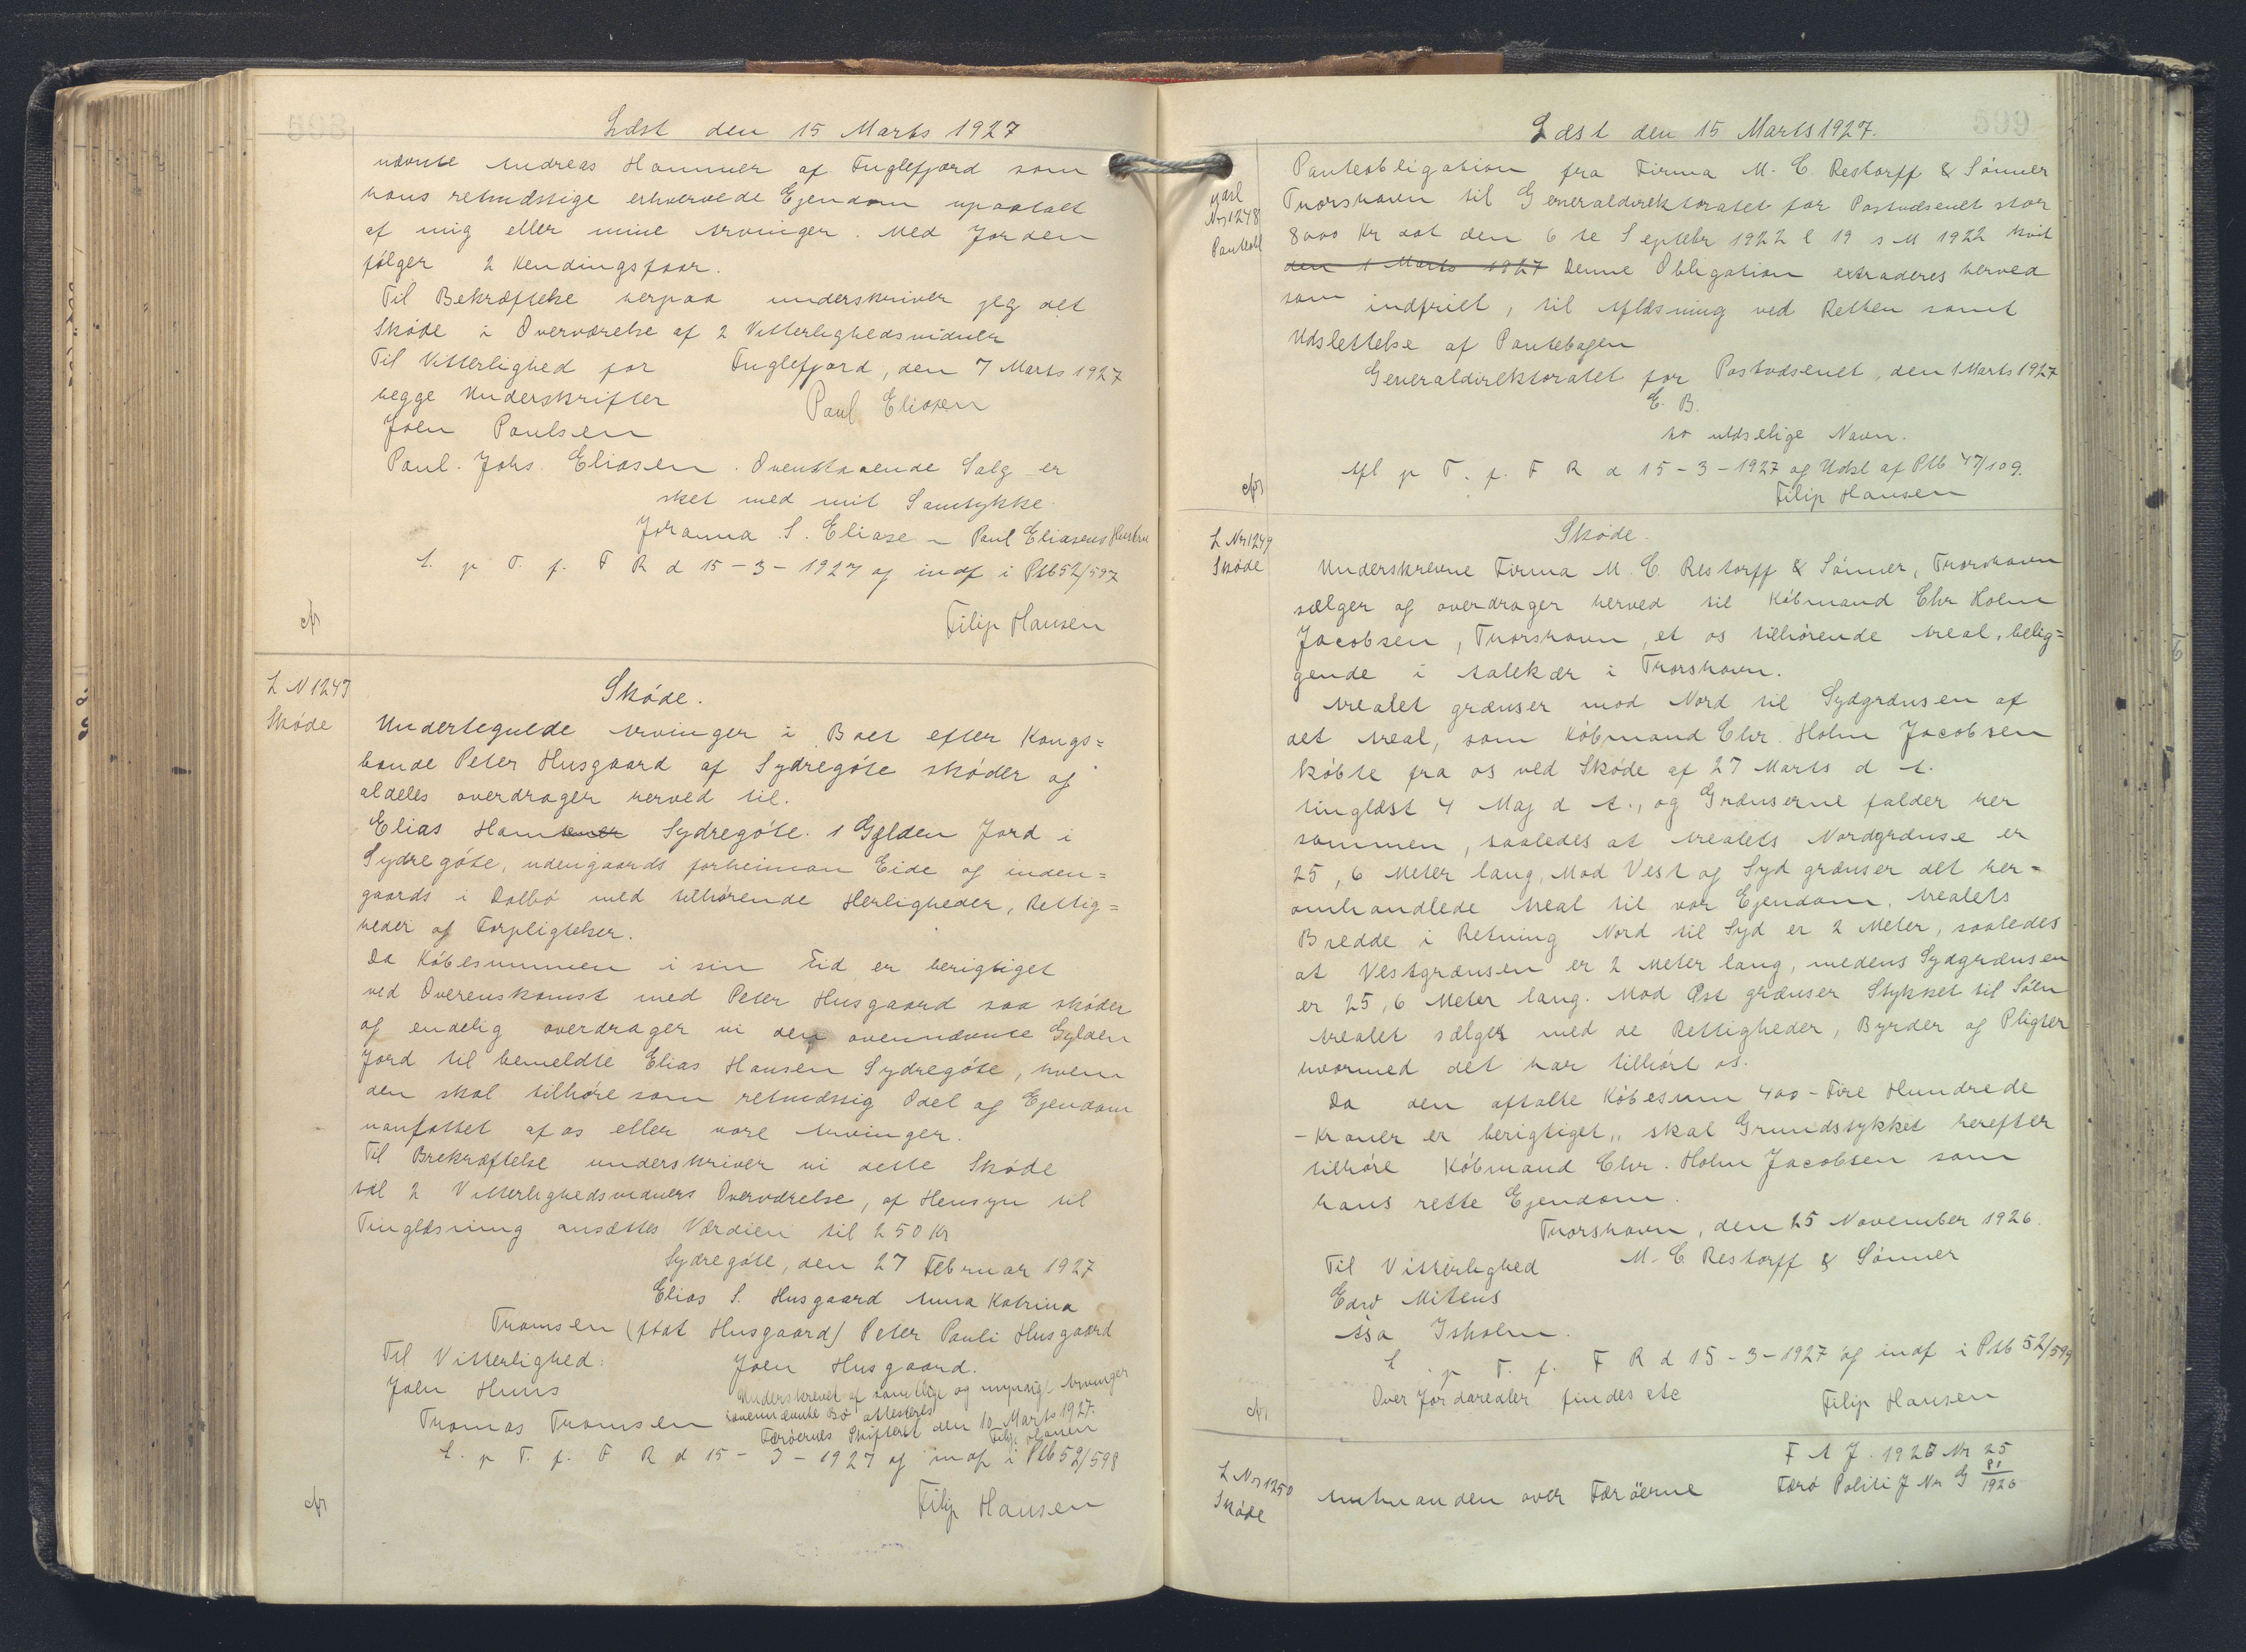 Læst den 15 Marts 1927
nævnte Andreas Hammer af Fuglefjord som
hans retmæssige erhvervede Ejendom upaatalt
af mig eller mine Arvinger. Med Jorden
følger 2 Kendingsfaar.
Til Bekræftelse herpaa underskriver jeg det
Skøde i Overværelse af 2 Vitterlighedsvidner
Til Vitterlighed for Fuglefjord, den 7 Marts 1927
begge Underskrifter Paul Eliasen
Joen Poulsen
Paul. Johs. Eliasen. Ovenstaaende Salg er
sket med mit Samtykke.
Johanna S. Eliase - Paul Eliasens Hustru
L. p T. f. F R d 15-3-1927 og indf i Ptb 52/597
Filip Hansen
cfr
L N 1247
Skøde
Skøde.
Undertegnede Arvinger i Boet efter Kongs=
bonde Peter Husgaard af Sydregøte skøder og
aldeles overdrager herved til.
Elias Hansen Sydregøte. 1 Gylden Jord i
Sydregøte, udengaards forheiman Eide og inden=
gaards i Dalbø med tilhørende Herligheder, Rettig=
heder og Forpligtelser.
Da Købesummen i sin Tid er berigtiget
ved Overenskomst med Peter Husgaard saa skøder
og endelig overdrager vi den ovennævnte Gylden
Jord til bemeldte Elias Hansen Sydregøte, hvem
den skal tilhøre som retmæssig Odel og Ejendom
uanfattet af os eller vore Arvinger.
Til Brekræftelse underskriver vi dette Skøde
til 2 Vitterlighedsvidners Overværelse, af Hensyn til
Tinglæsning ansættes Værdien til 250 Kr
Sydregøte, den 27 Februar 1927
Elias S. Husgaard Anna Katrina
Thomsen (født Husgaard) Peter Pauli Husgaard
Til Vitterlighed: Joen Husgaard.
Joen Huus Underskrevet af samtlige og myndige Arvinger
Thomas Thomsen i ovennævnte Bo attesteres
Færøernes Skifteret den 10 Marts 1927.
Filip Hansen
L. p T. f. F R d 15-3-1927 og indf i Ptb 52/598
Filip Hansen
cfr
599
Læst den 15 Marts 1927.
Nr 1248
Panteobl
Panteobligation fra Firma M. C. Restorff & Sønner
Thorshavn til Generaldirektoratet for Postvæsenet stor
8000 Kr dat den 6 te Septebr 1922 l 19 s M 1922 kvit
den 1 Marts 1927 Denne Obligation extraderes herved
som indfriet, til Aflæsning ved Retten samt
Udslettelse af Pantebogen
Generaldirektoratet for Postvæsenet, den 1 Marts 1927
E. B.
to utdselige Navn.
Afl p T. f. F R d 15-3-1927 og Udsl af Ptb 47/109.
Filip Hansen
cfr
L Nr 1249
Skøde
Skøde.
Underskrevne Firma M. C. Restorff & Sønner, Thorshavn
sælger og overdrager herved til Købmand Chr Holm
Jacobsen, Thorshavn, et os tilhørende Areal, belig=
gende i Aalekær i Thorshavn.
Arealet grænser mod Nord til Sydgrænsen af
det Areal, som Købmand Chr. Holm Jacobsen
købte fra os ved Skøde af 27 Marts d A.
tinglæst 4 Maj d A., og Grænserne falder her
sammen, saaledes at Arealets Nordgrænse er
25,6 Meter lang, Mod Vest og Syd grænser det her-
omhandlede Areal til vor Ejendom. Arealets
Bredde i Retning Nord til Syd er 2 Meter, saaledes
at Vestgrænsen er 2 Meter lang, medens Sydgrænsen
er 25,6 Meter lang. Mod Øst grænser Stykket til Søen
Arealet sælges med de Rettigheder, Byrder og Pligter
hvormed det har tilhørt os.
Da den aftalte Købesum 400 - Fire Hundrede
- Kroner er berigtiget,, skal Grundstykket herefter
tilhøre Købmand Chr. Holm Jacobsen som
hans rette Ejendom.
Thorshavn, den 25 November 1926.
Til Vitterlighed M. C. Restorff & Sønner
Edrd Mitens
Asa Isholm.
L. p T. f. F R d 15-3-1927 og indf i Ptb 52/599
Over Jordarealer findes etc Filip Hansen
cfr
L Nr 1250
Skøde
F A J. 1926 Nr 25
Amtmanden over Færøerne Færø Politi J Nr G 81/1926